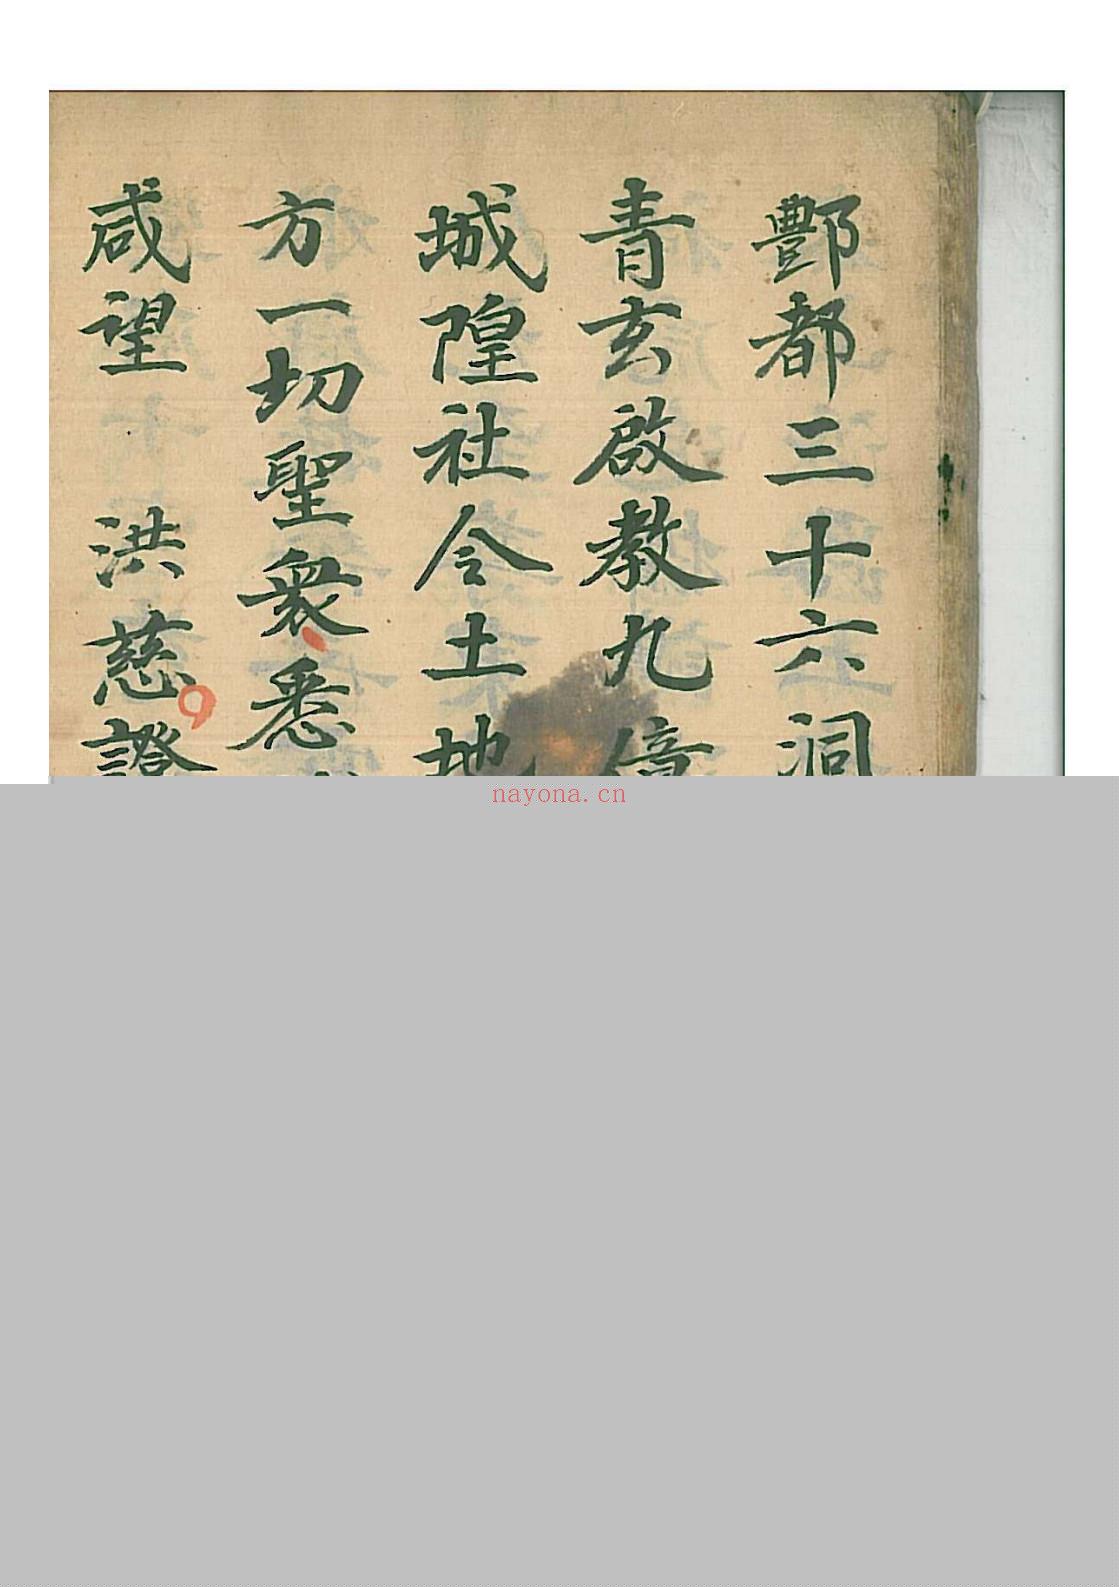 酆都三十六洞
青玄啟教九億
城隍社令土地
方一切聖衆悉
咸望 洪慈證
nayona.cn